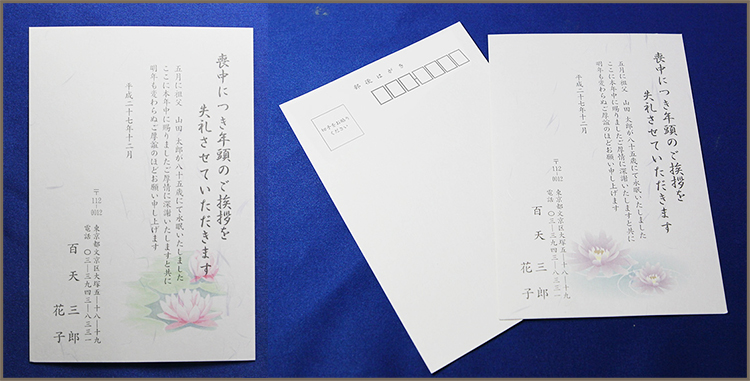 喪中につき年頭のご挨拶を
失礼させていただきます
五月に祖父 山田 太郎が八十五歳にて永眠いたしました
ここに本年中に賜りましたご厚情に深謝いたしますと共に
明年も変わらぬご厚誼のほどお願い申し上げます
平成二十七年十二月
〒112-0012
東京都文京区大塚五ー十八ー十九
電話 〇三ー三九四三ー八三三一
百天 三郎
花子
郵便はがき
切手をお貼り
ください
喪中につき年頭のご挨拶を
失礼させていただきます
五月に祖父 山田 太郎が八十五歳にて永眠いたしました
ここに本年中に賜りましたご厚情に深謝いたしますと共に
明年も変わらぬご厚誼のほどお願い申し上げます
平成二十七年十二月
〒112-0012
東京都文京区大塚五ー十八ー十九
電話 〇三ー三九四三ー八三三一
百天 三郎
花子